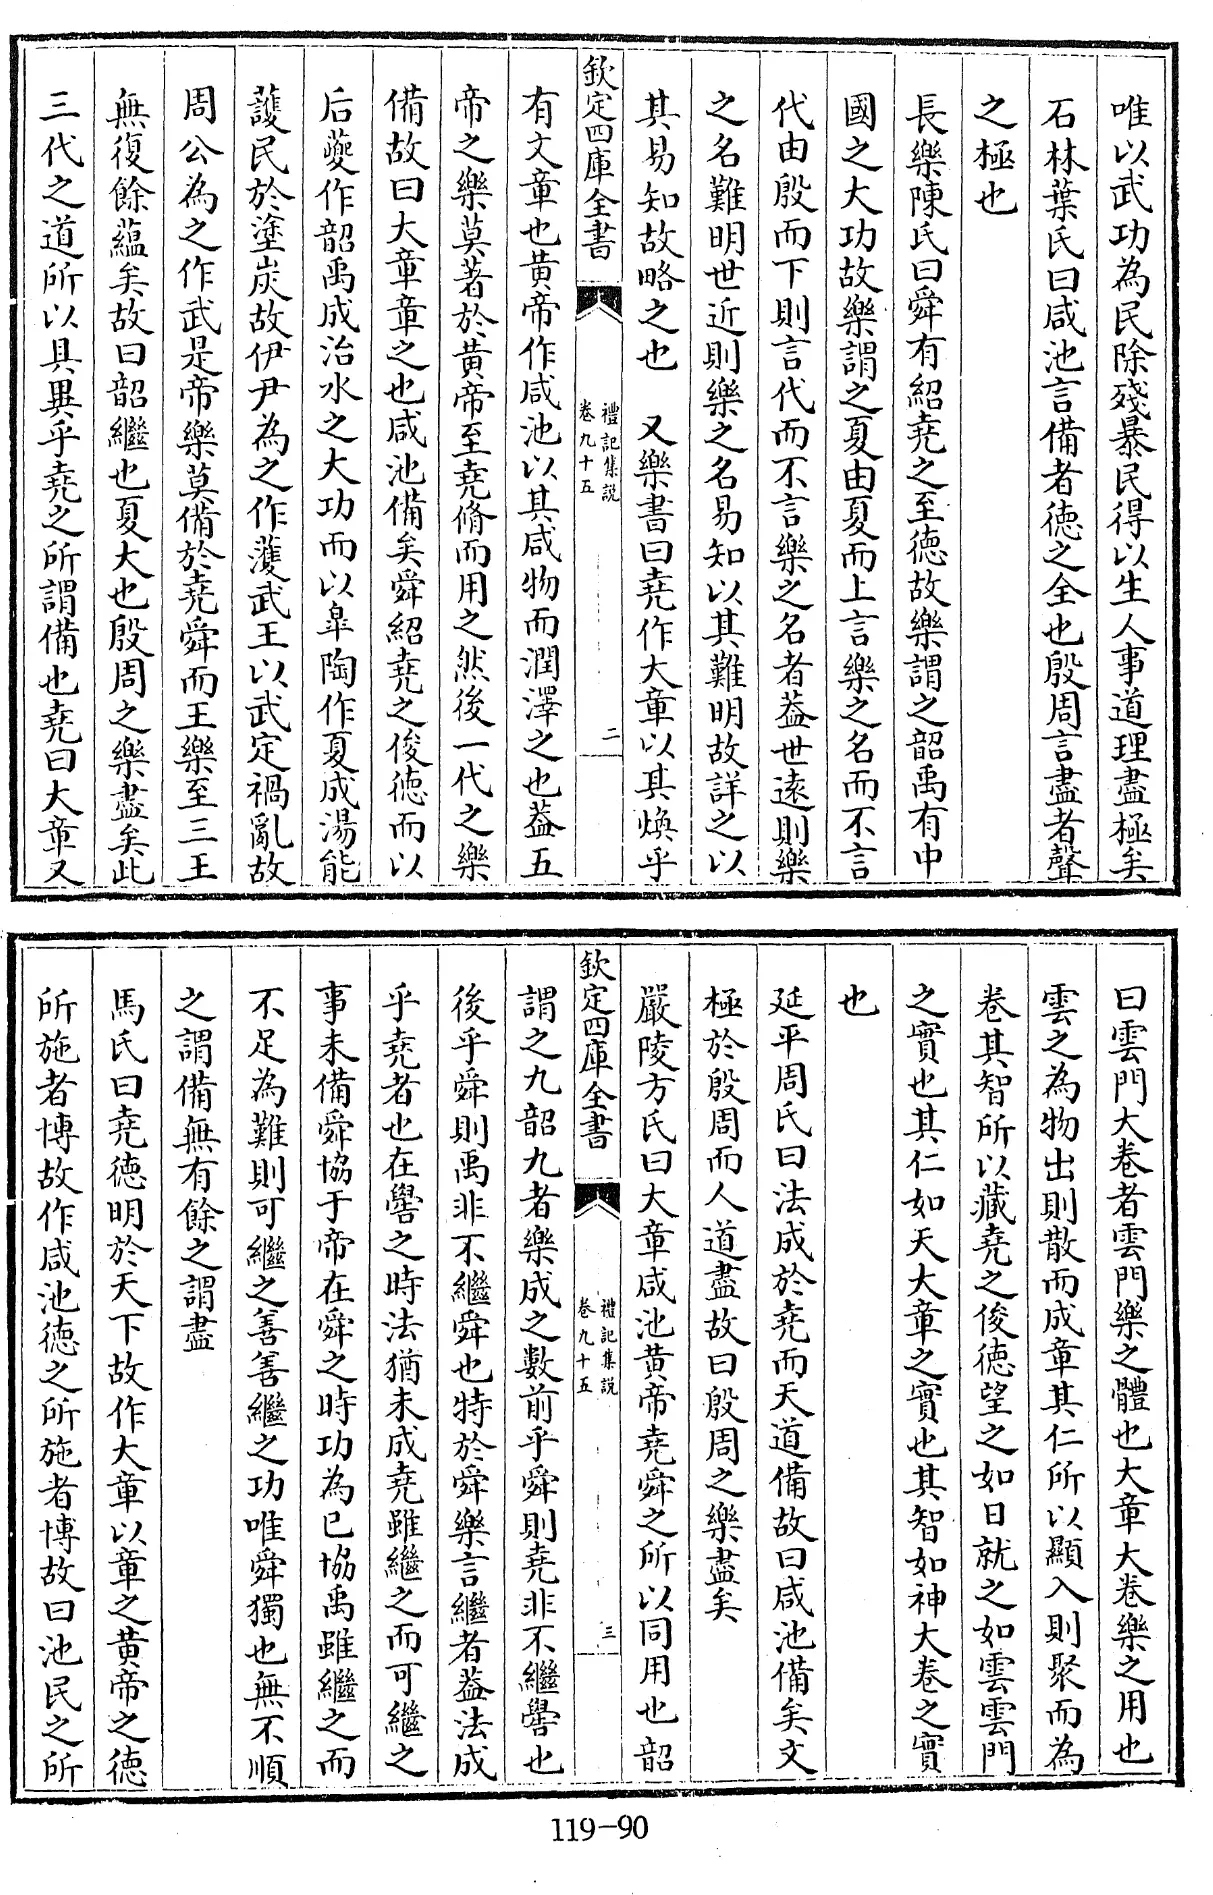 唯以武功為民除殘暴民得以生人事道理盡極矣
石林葉氏曰咸池言備者德之全也殷周言盡者聲
之極也
長樂陳氏曰舜有紹堯之至德故樂謂之韶禹有中
國之大功故樂謂之夏由夏而上言樂之名而不言
代由殷而下則言代而不言樂之名者葢世遠則樂
之名難明世近則樂之名易知以其難明故詳之以
其易知故略之也　又樂書曰堯作大章以其煥乎
欽定四庫全書
禮記集說
卷九十五
二
有文章也黄帝作咸池以其咸物而潤澤之也葢五
帝之樂莫著於黄帝至堯脩而用之然後一代之樂
備故曰大章章之也咸池備矣舜紹堯之俊德而以
后夔作韶禹成治水之大功而以皐陶作夏成湯能
護民於塗炭故伊尹為之作濩武王以武定禍亂故
周公為之作武是帝樂莫備於堯舜而王樂至三王
無復餘蘊矣故曰韶繼也夏大也殷周之樂盡矣此
三代之道所以具異乎堯之所謂備也堯曰大章又
曰雲門大卷者雲門樂之體也大章大卷樂之用也
雲之為物出則散而成章其仁所以顯入則聚而為
卷其智所以藏堯之俊德望之如日就之如雲雲門
之實也其仁如天大章之實也其智如神大卷之實
也
延平周氏曰法成於堯而天道備故曰咸池備矣文
極於殷周而人道盡故曰殷周之樂盡矣
嚴陵方氏曰大章咸池黄帝堯舜之所以同用也韶
欽定四庫全書
禮記集說
卷九十五
三
謂之九韶九者樂成之數前乎舜則堯非不繼嚳也
後乎舜則禹非不繼舜也特於舜樂言繼者葢法成
乎堯者也在嚳之時法猶未成堯雖繼之而可繼之
事未備舜協于帝在舜之時功為已協禹雖繼之而
不足為難則可繼之善善繼之功唯舜獨也無不順
之謂備無有餘之謂盡
馬氏曰堯德明於天下故作大章以章之黄帝之德
所施者博故作咸池德之所施者博故曰池民之所
119-90